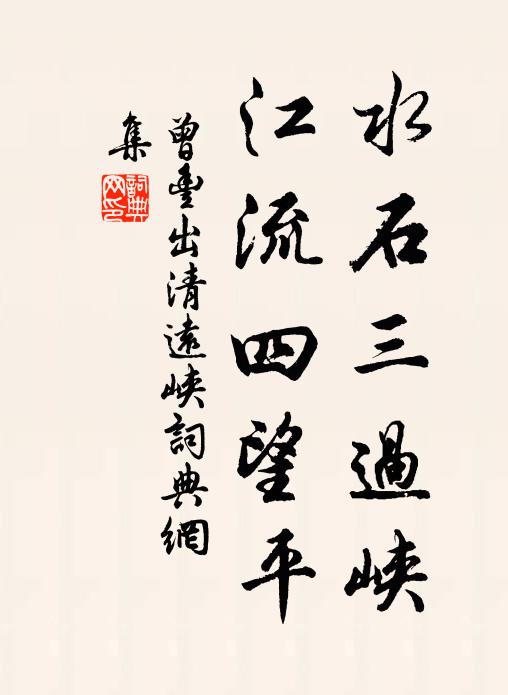 水石三過峽
江流四望平
曾豐出清遠峽詞典網
集
詞典
网印